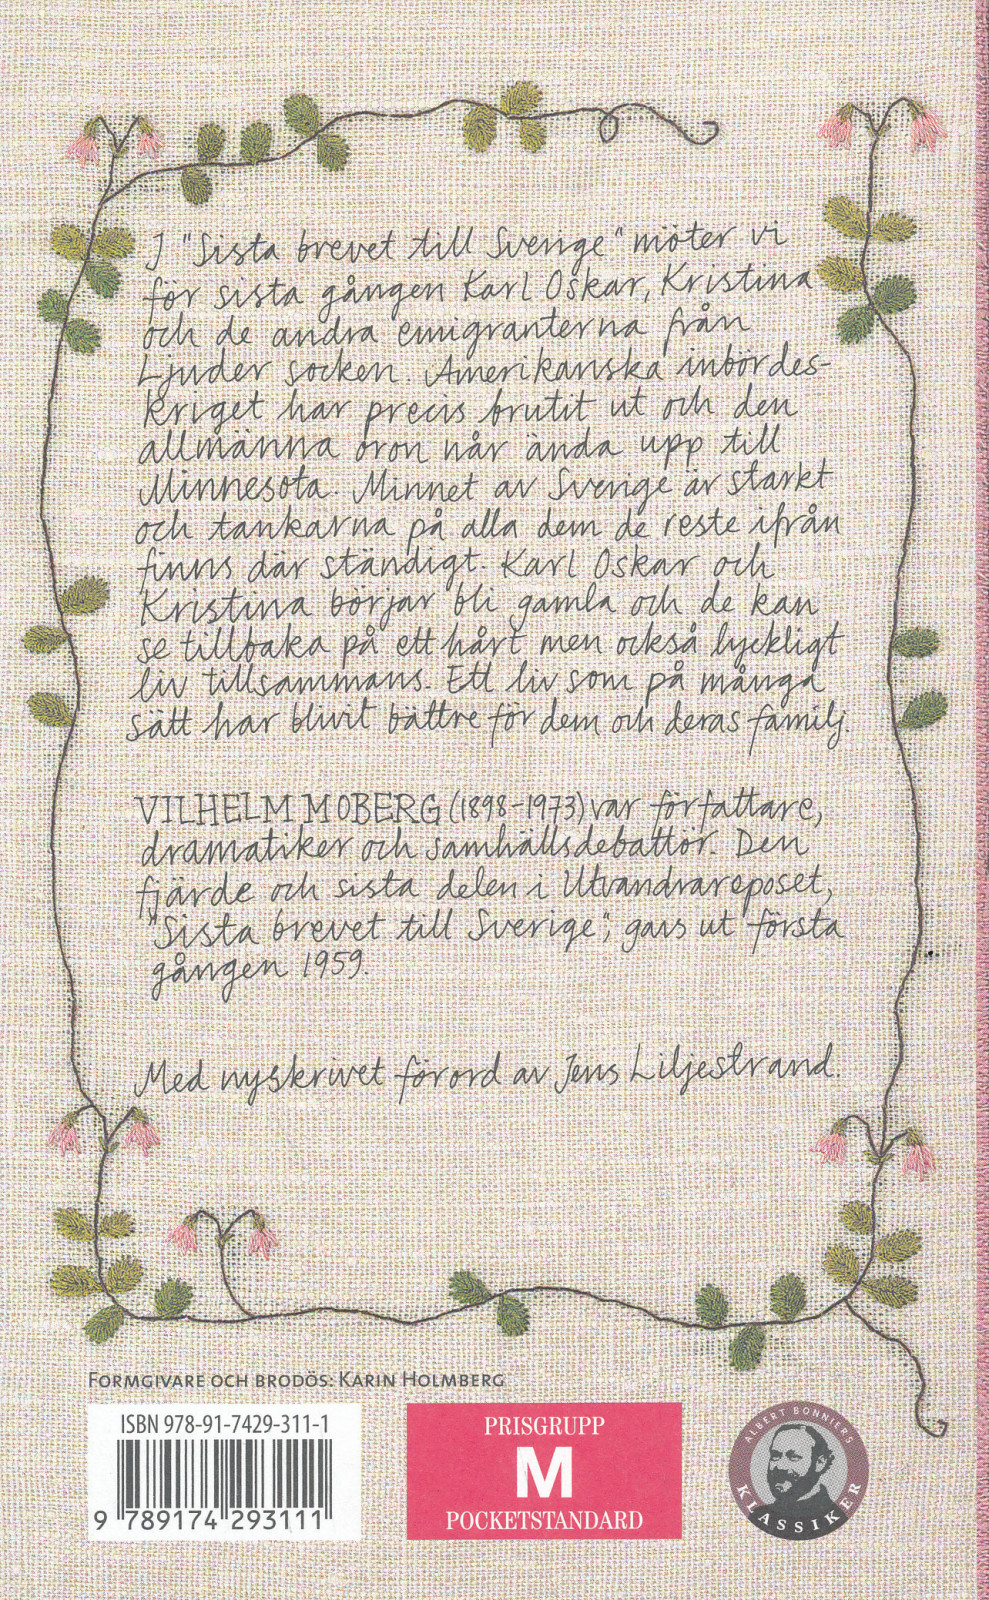 I "Sista brevet till Sverige" möter vi
för sista gången Karl Oskar, Kristina
och de andra emigranterna från
Ljuder socken. Amerikanska inbördes-
kriget har precis brutit ut och den
allmänna oron når ända upp till
Minnesota. Minnet av Sverige är starkt
och tankarna på alla dem de reste ifrån
finns där ständigt. Karl Oskar och
Kristina börjar bli gamla och de kan
se tillbaka på ett hårt men också lyckligt
liv tillsammans. Ett liv som på många
sätt har blivit bättre för dem och deras familj.
VILHELM MOBERG (1898-1973) var författare,
dramatiker och samhällsdebattör. Den
fjärde och sista delen i Utvandrareposet,
"Sista brevet till Sverige", gavs ut första
gången 1959.
Med nyskrivet förord av Jens Liljestrand.
FORMGIVARE OCH BRODÖS: KARIN HOLMBERG
ISBN 978-91-7429-311-1
9 789174 293111
PRISGRUPP
M
POCKETSTANDARD
ALBERT BONNIERS
KLASSIKER